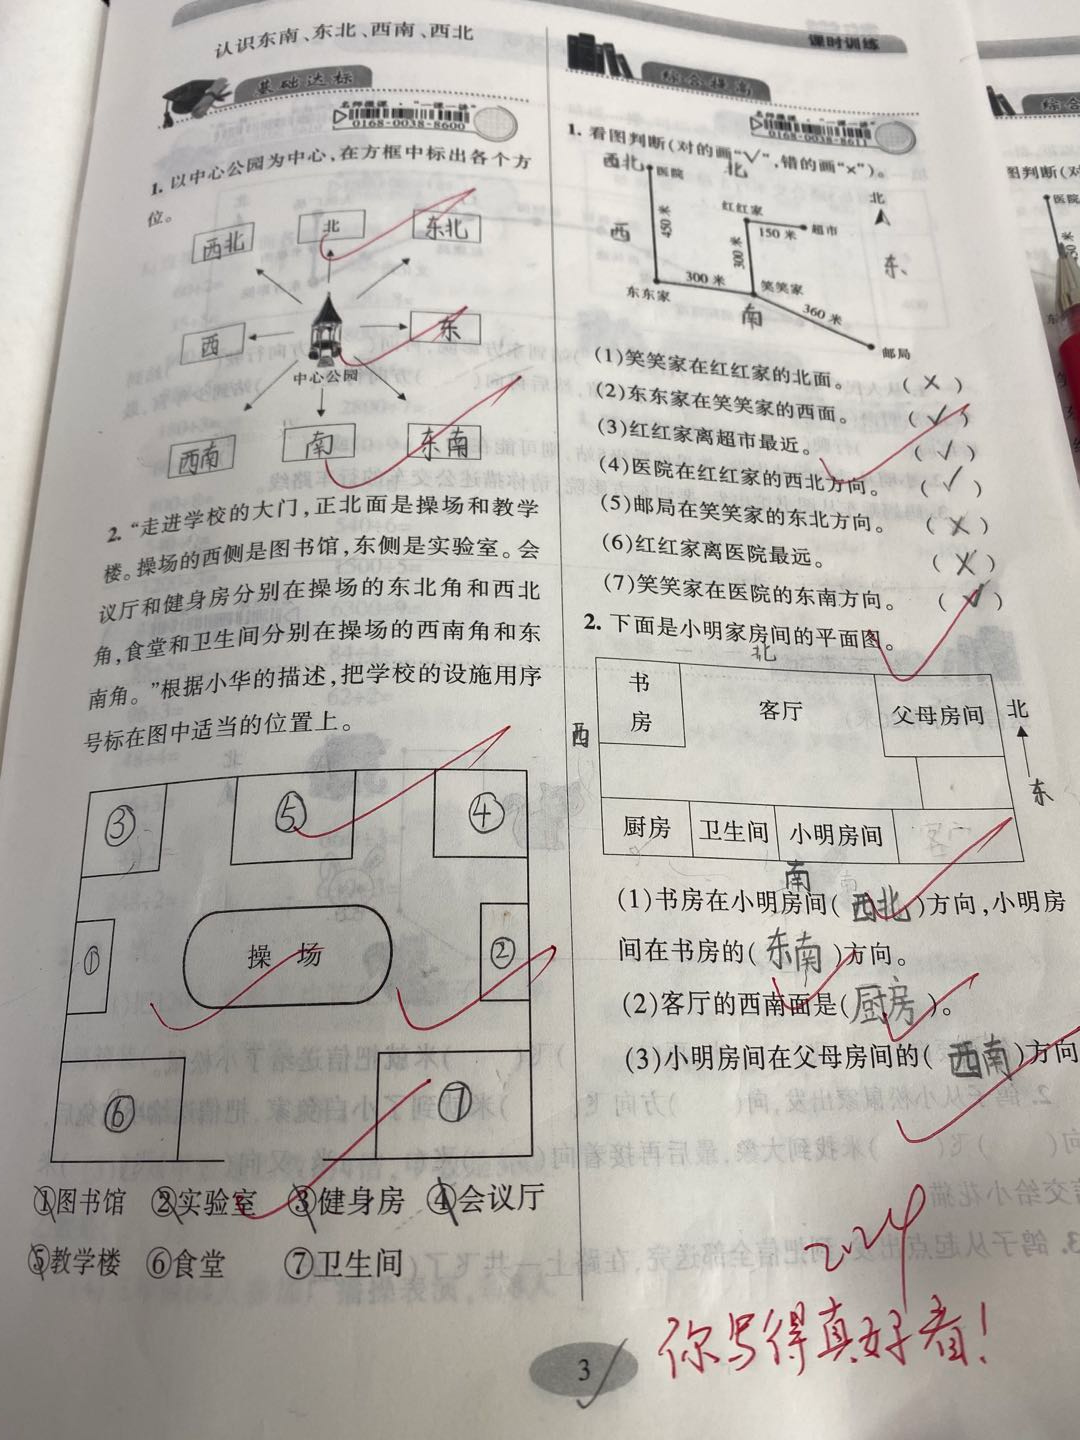 认识东南、东北、西南、西北
基础达标
名师微课·“一课一译”
0168-0038-8600
1. 以中心公园为中心,在方框中标出各个方
位。
西北
北
东北
西
东
中心公园
西南
南
东南
2. “走进学校的大门,正北面是操场和教学
楼。操场的西侧是图书馆,东侧是实验室。会
议厅和健身房分别在操场的东北角和西北
角,食堂和卫生间分别在操场的西南角和东
南角。”根据小华的描述,把学校的设施用序
号标在图中适当的位置上。
③
⑤
④
①
操 场
②
⑥
⑦
①图书馆 ②实验室 ③健身房 ④会议厅
⑤教学楼 ⑥食堂 ⑦卫生间
课时训练
综合提高
0168-0038-8611
1. 看图判断(对的画“√”,错的画“×”)。
西北
医院
北
北
红红家
西
450米
150米
超市
300米
东
300米
笑笑家
东东家
南
360米
邮局
(1)笑笑家在红红家的北面。 (×)
(2)东东家在笑笑家的西面。 (√)
(3)红红家离超市最近。 (√)
(4)医院在红红家的西北方向。 (√)
(5)邮局在笑笑家的东北方向。 (×)
(6)红红家离医院最远。 (×)
(7)笑笑家在医院的东南方向。 (√)
2. 下面是小明家房间的平面图。
北
书房
客厅
父母房间
北
西
东
厨房
卫生间
小明房间
南
(1)书房在小明房间(西北)方向,小明房
间在书房的(东南)方向。
(2)客厅的西南面是(厨房)。
(3)小明房间在父母房间的(西南)方向
2.24
你写得真好看!
3
综合
图判断(对
医院